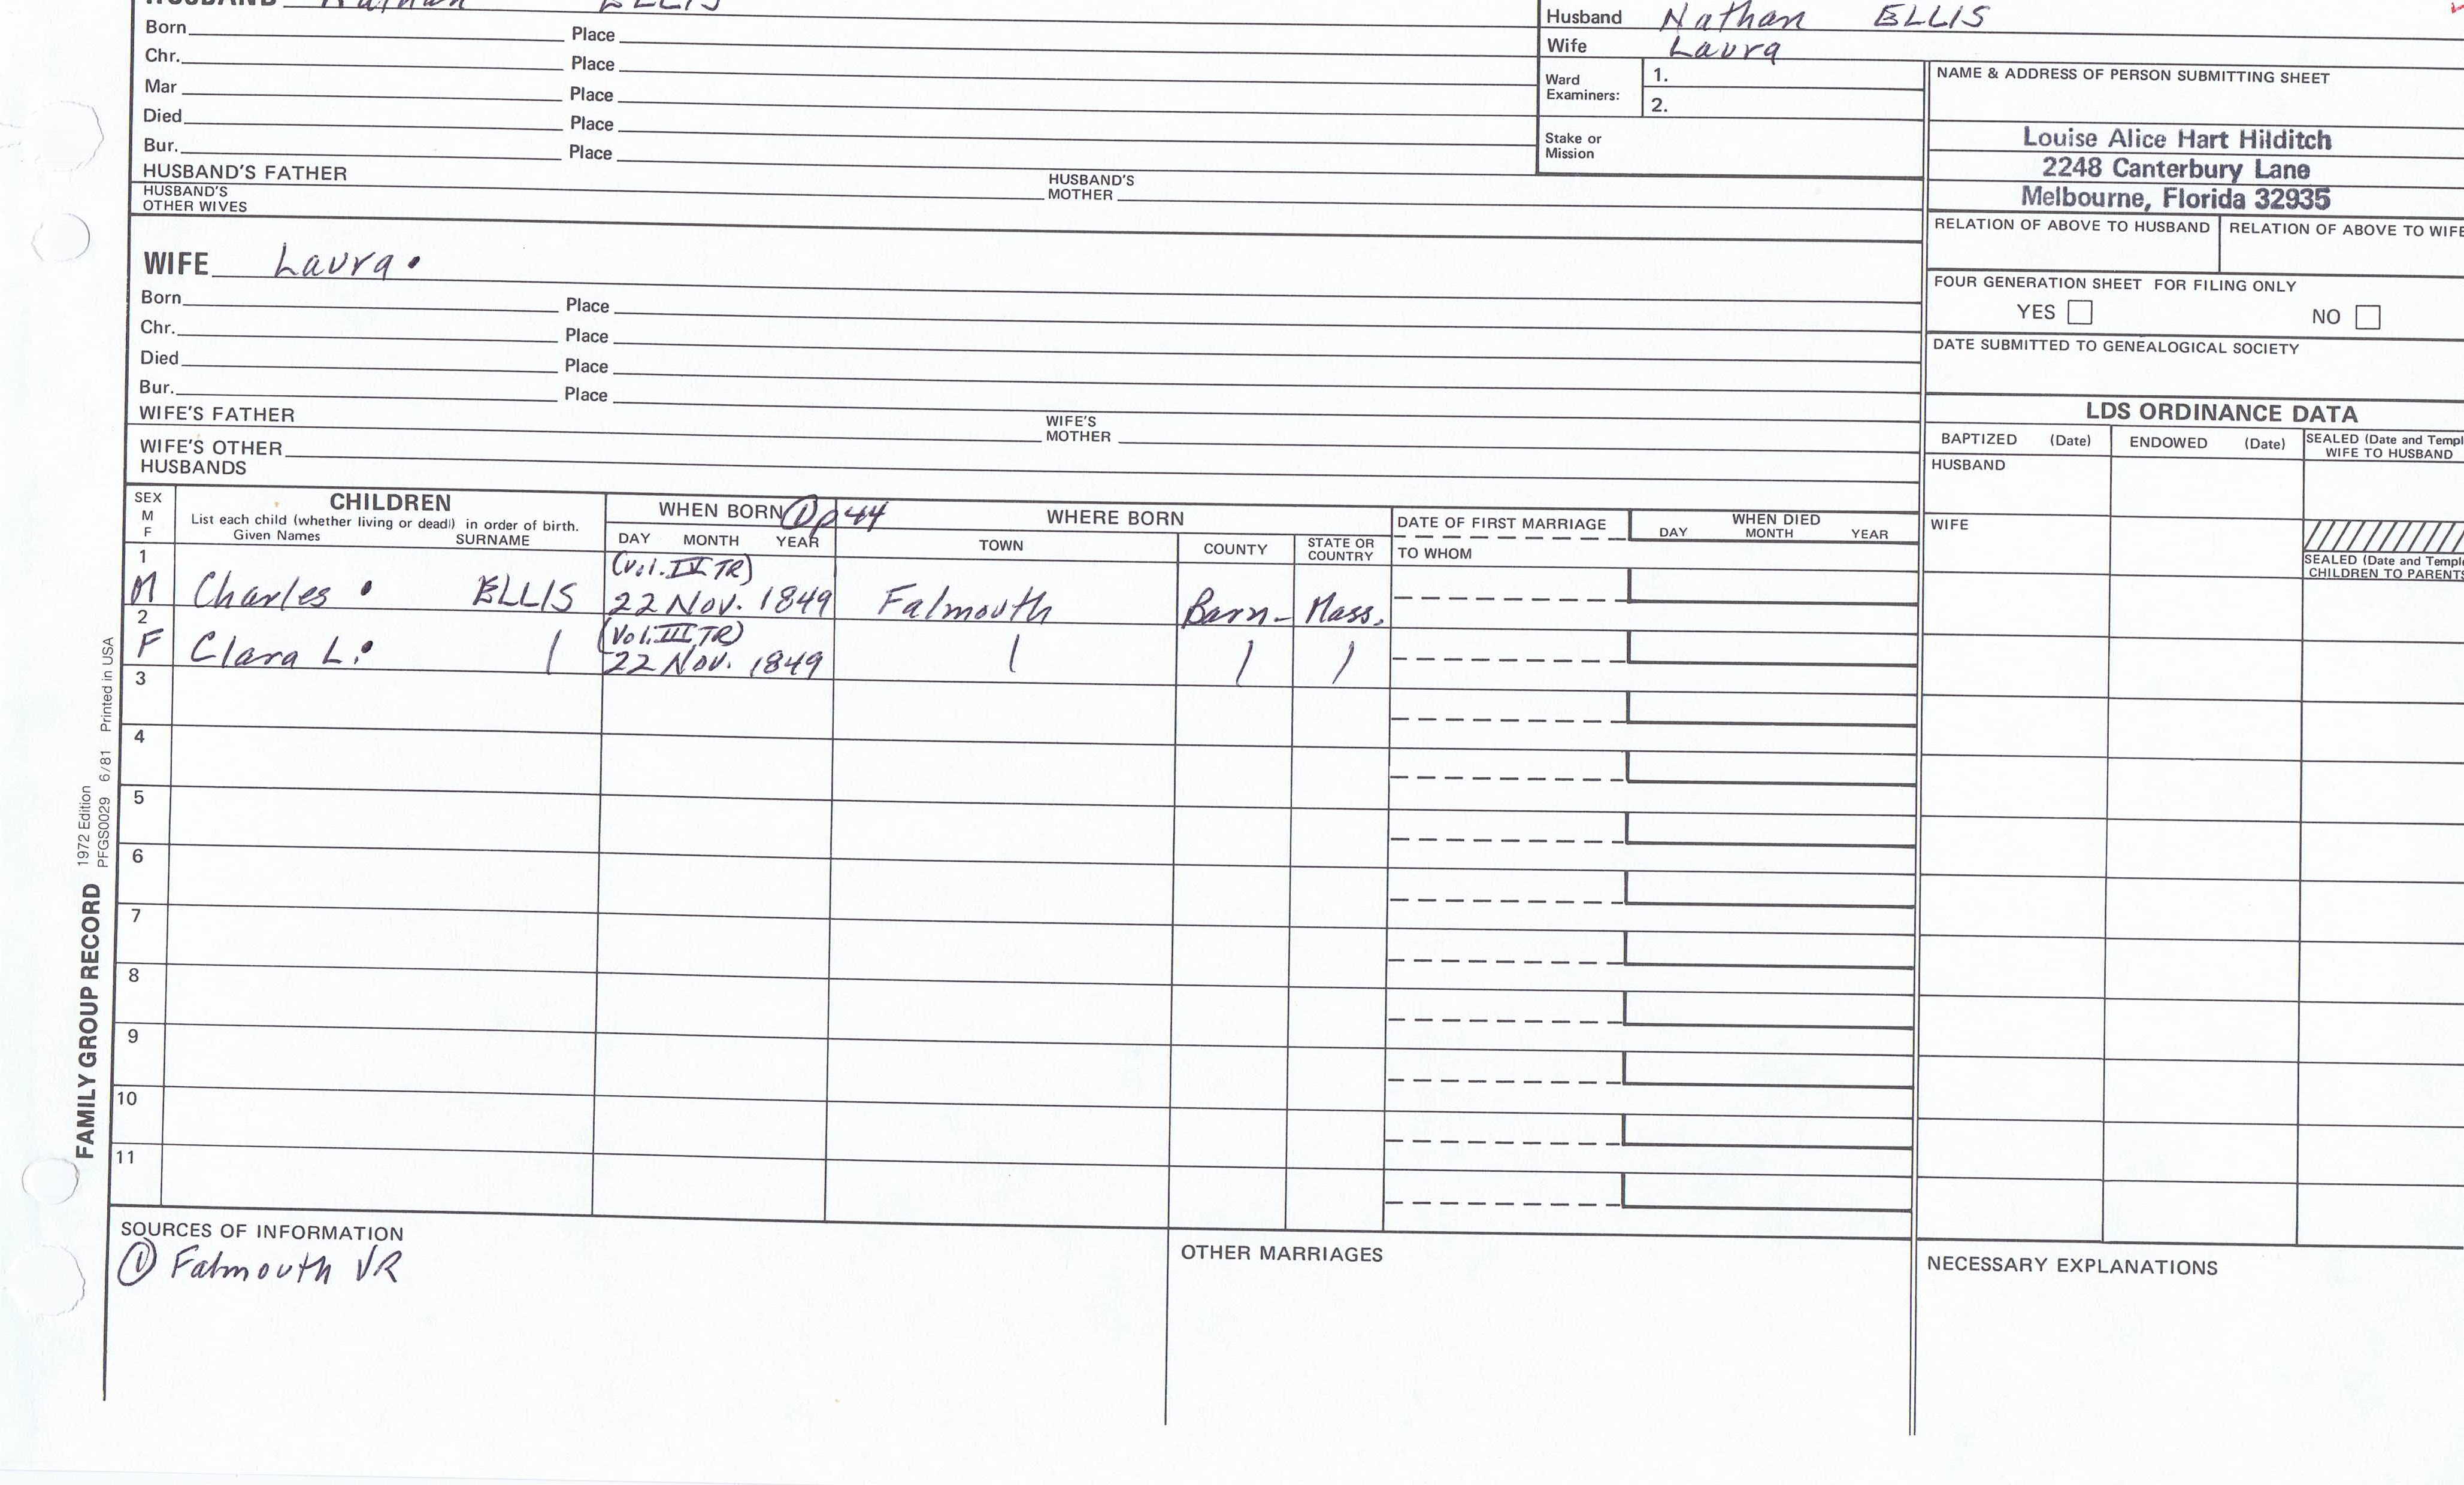 HUSBAND Nathan ELLIS
Born Place
Chr. Place
Mar Place
Died Place
Bur. Place
HUSBAND'S FATHER HUSBAND'S MOTHER
HUSBAND'S OTHER WIVES
Husband Nathan ELLIS
Wife Laura
Ward Examiners: 1.
2.
Stake or Mission
NAME & ADDRESS OF PERSON SUBMITTING SHEET
Louise Alice Hart Hilditch
2248 Canterbury Lane
Melbourne, Florida 32935
RELATION OF ABOVE TO HUSBAND RELATION OF ABOVE TO WIFE
FOUR GENERATION SHEET FOR FILING ONLY
YES NO
DATE SUBMITTED TO GENEALOGICAL SOCIETY
WIFE Laura.
Born Place
Chr. Place
Died Place
Bur. Place
WIFE'S FATHER WIFE'S MOTHER
WIFE'S OTHER HUSBANDS
LDS ORDINANCE DATA
BAPTIZED (Date) ENDOWED (Date) SEALED (Date and Templ
WIFE TO HUSBAND
HUSBAND
WIFE
SEALED (Date and Temple
CHILDREN TO PARENTS
SEX M F
CHILDREN
List each child (whether living or dead) in order of birth.
Given Names SURNAME
WHEN BORN ① p 44
DAY MONTH YEAR
WHERE BORN
TOWN COUNTY STATE OR COUNTRY
DATE OF FIRST MARRIAGE
TO WHOM
WHEN DIED
DAY MONTH YEAR
1 (Vol. IV TR)
M Charles . ELLIS 22 Nov. 1849 Falmouth Barn- Mass.
2 (Vol. III TR)
F Clara L. 22 Nov. 1849
3
4
5
6
7
8
9
10
11
SOURCES OF INFORMATION
① Falmouth VR
OTHER MARRIAGES
NECESSARY EXPLANATIONS
FAMILY GROUP RECORD
1972 Edition
PFGS0029 6/81 Printed in USA